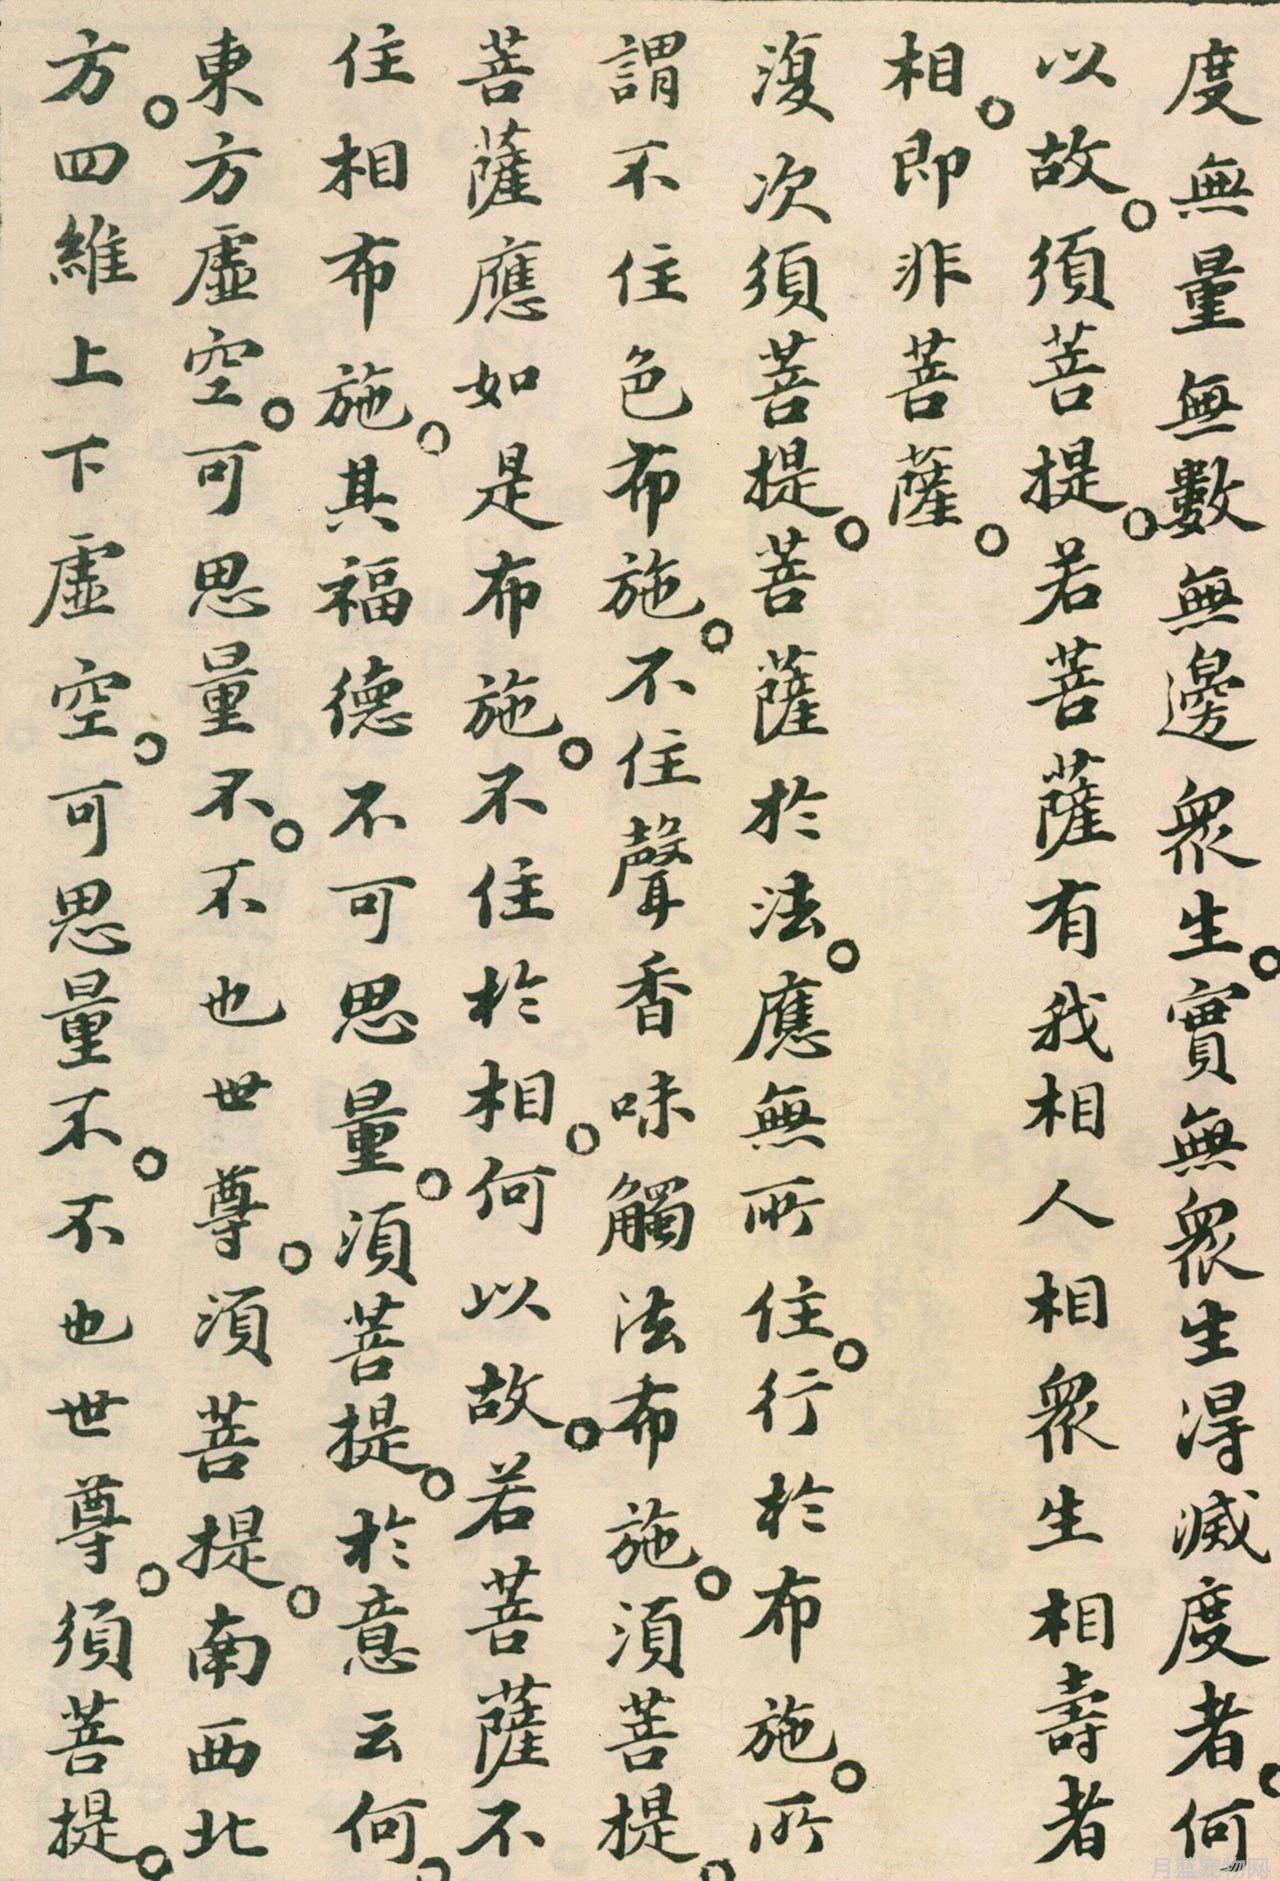 度無量無數無邊眾生。實無眾生得滅度者。何
以故。須菩提。若菩薩有我相人相眾生相壽者
相。即非菩薩。
復次須菩提。菩薩於法。應無所住。行於布施。所
謂不住色布施。不住聲香味觸法布施。須菩提。
菩薩應如是布施。不住於相。何以故。若菩薩不
住相布施。其福德不可思量。須菩提。於意云何。
東方虛空。可思量不。不也世尊。須菩提。南西北
方。四維上下虛空。可思量不。不也世尊。須菩提。
月蓝宠物网